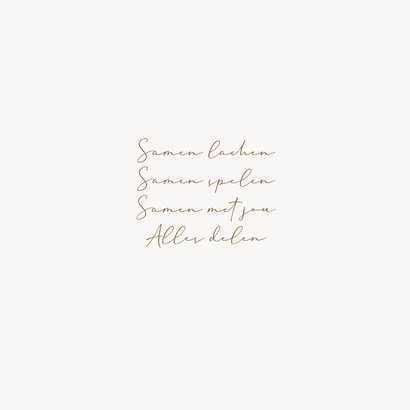 Samen lachen
Samen spelen
Samen met jou
Alles delen